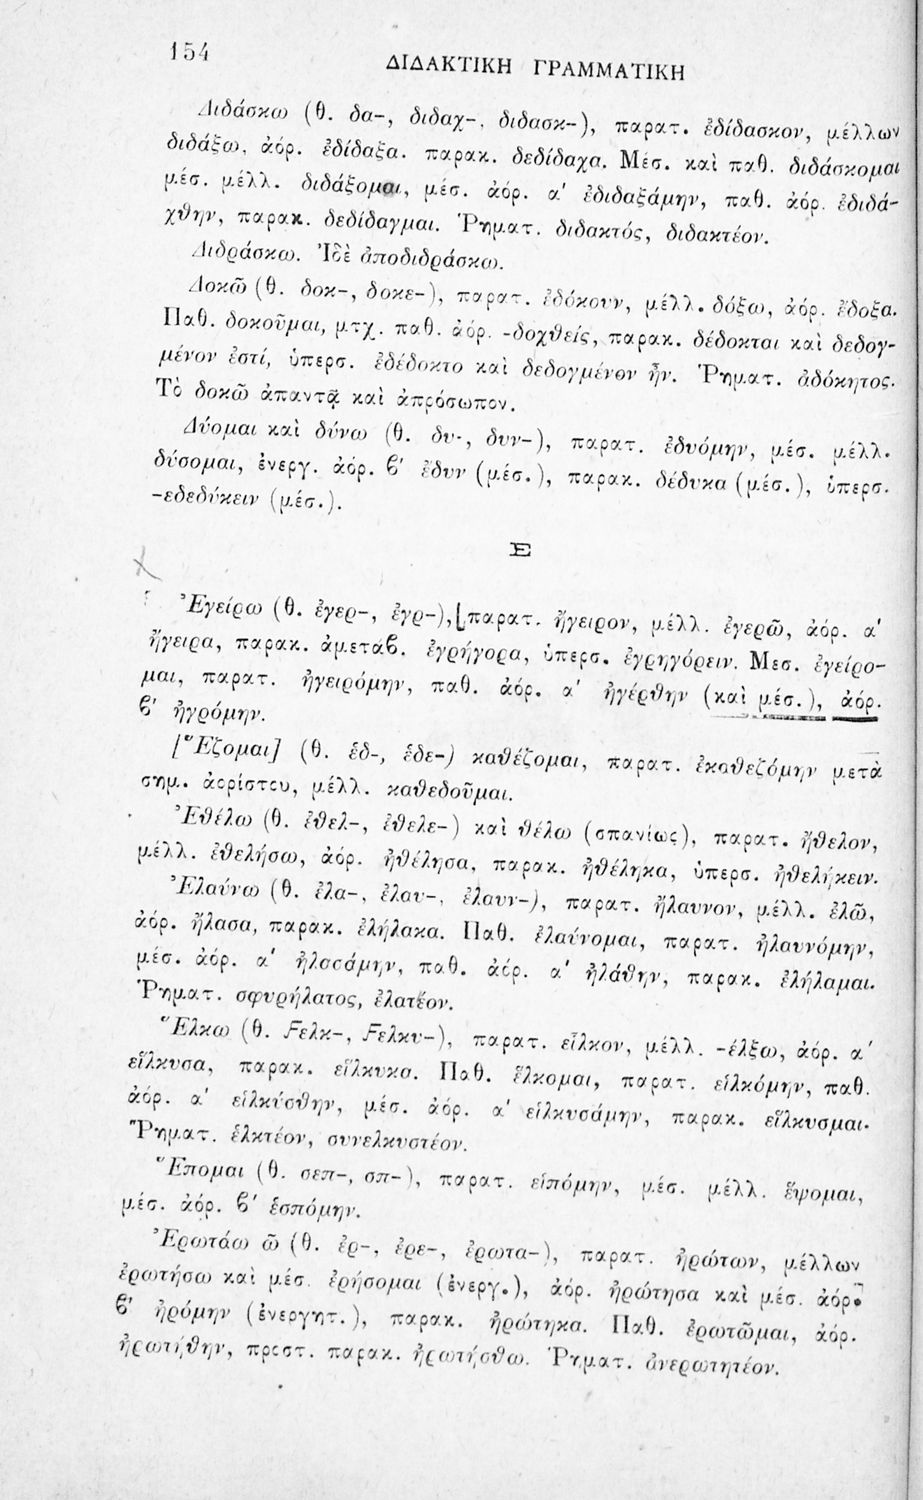 154
ΔΙΔΑΚΤΙΚΗ ΓΡΑΜΜΑΤΙΚΗ
Διδάσκω (θ. δα-, διδαχ-, διδασκ-), παρατ. ἐδίδασκον, μέλλων
διδάξω, ἀόρ. ἐδίδαξα. παρακ. δεδίδαχα. Μέσ. καὶ παθ. διδάσκομαι
μέσ. μέλλ. διδάξομαι, μέσ. ἀόρ. α' ἐδιδαξάμην, παθ. ἀόρ. ἐδιδά-
χθην, παρακ. δεδίδαγμαι. Ῥηματ. διδακτός, διδακτέον.
Διδράσκω. Ἰδὲ ἀποδιδράσκω.
Δοκῶ (θ. δοκ-, δοκε-), παρατ. ἐδόκουν, μέλλ. δόξω, ἀόρ. ἔδοξα.
Παθ. δοκοῦμαι, μτχ. παθ. ἀόρ. -δοχθείς, παρακ. δέδοκται καὶ δεδογ-
μένον ἐστί, ὑπερσ. ἐδέδοκτο καὶ δεδογμένον ἦν. Ῥηματ. ἀδόκητος.
Τὸ δοκῶ ἀπαντᾷ καὶ ἀπρόσωπον.
Δύομαι καὶ δύνω (θ. δυ-, δυν-), παρατ. ἐδυόμην, μέσ. μέλλ.
δύσομαι, ἐνεργ. ἀόρ. ϐ' ἔδυν (μέσ.), παρακ. δέδυκα (μέσ.), ὑπερσ.
-εδεδύκειν (μέσ.).
Ε
Ἐγείρω (θ. ἐγερ-, ἐγρ-), παρατ. ἤγειρον, μέλλ. ἐγερῶ, ἀόρ. α'
ἤγειρα, παρακ. ἀμετάϐ. ἐγρήγορα, ὑπερσ. ἐγρηγόρειν. Μεσ. ἐγείρο-
μαι, παρατ. ἠγειρόμην, παθ. ἀόρ. α' ἠγέρθην (καὶ μέσ.), ἀόρ.
ϐ' ἠγρόμην.
[Ἕζομαι] (θ. ἑδ-, ἑδε-) καθέζομαι, παρατ. ἐκαθεζόμην μετὰ
σημ. ἀορίστου, μέλλ. καθεδοῦμαι.
Ἐθέλω (θ. ἐθελ-, ἐθελε-) καὶ θέλω (σπανίως), παρατ. ἤθελον,
μέλλ. ἐθελήσω, ἀόρ. ἠθέλησα, παρακ. ἠθέληκα, ὑπερσ. ἠθελήκειν.
Ἐλαύνω (θ. ἐλα-, ἐλαυ-, ἐλαυν-), παρατ. ἤλαυνον, μέλλ. ἐλῶ,
ἀόρ. ἤλασα, παρακ. ἐλήλακα. Παθ. ἐλαύνομαι, παρατ. ἠλαυνόμην,
μέσ. ἀόρ. α' ἠλασάμην, παθ. ἀόρ. α' ἠλάθην, παρακ. ἐλήλαμαι.
Ῥηματ. σφυρήλατος, ἐλατέον.
Ἕλκω (θ. Ϝελκ-, Ϝελκυ-), παρατ. εἷλκον, μέλλ. -έλξω, ἀόρ. α'
εἵλκυσα, παρακ. εἵλκυκα. Παθ. ἕλκομαι, παρατ. εἱλκόμην, παθ.
ἀόρ. α' εἱλκύσθην, μέσ. ἀόρ. α' εἱλκυσάμην, παρακ. εἵλκυσμαι.
Ῥηματ. ἑλκτέον, συνελκυστέον.
Ἕπομαι (θ. σεπ-, σπ-), παρατ. εἱπόμην, μέσ. μέλλ. ἕψομαι,
μέσ. ἀόρ. ϐ' ἑσπόμην.
Ἐρωτάω ῶ (θ. ἐρ-, ἐρε-, ἐρωτα-), παρατ. ἠρώτων, μέλλων
ἐρωτήσω καὶ μέσ. ἐρήσομαι (ἐνεργ.), ἀόρ. ἠρώτησα καὶ μέσ. ἀόρ.
ϐ' ἠρόμην (ἐνεργητ.), παρακ. ἠρώτηκα. Παθ. ἐρωτῶμαι, ἀόρ.
ἠρωτήθην, προστ. παρακ. ἠρωτήσθω. Ῥηματ. ἀνερωτητέον.